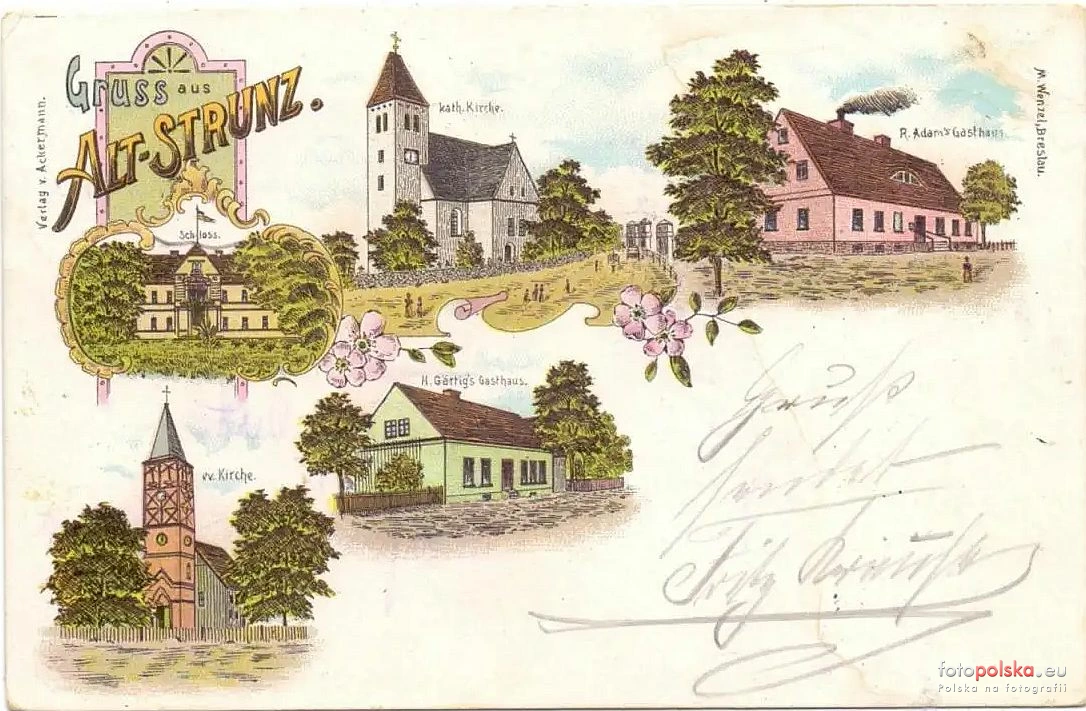 Gruss aus
ALT-STRUNZ.
Verlag v. Ackermann.
kath. Kirche.
R. Adam's Gasthaus.
M. Wenzel, Breslau.
Schloss.
H. Gärtig's Gasthaus.
ev. Kirche.
Gruß
sendet
Fritz
fotopolska.eu
Polska na fotografii